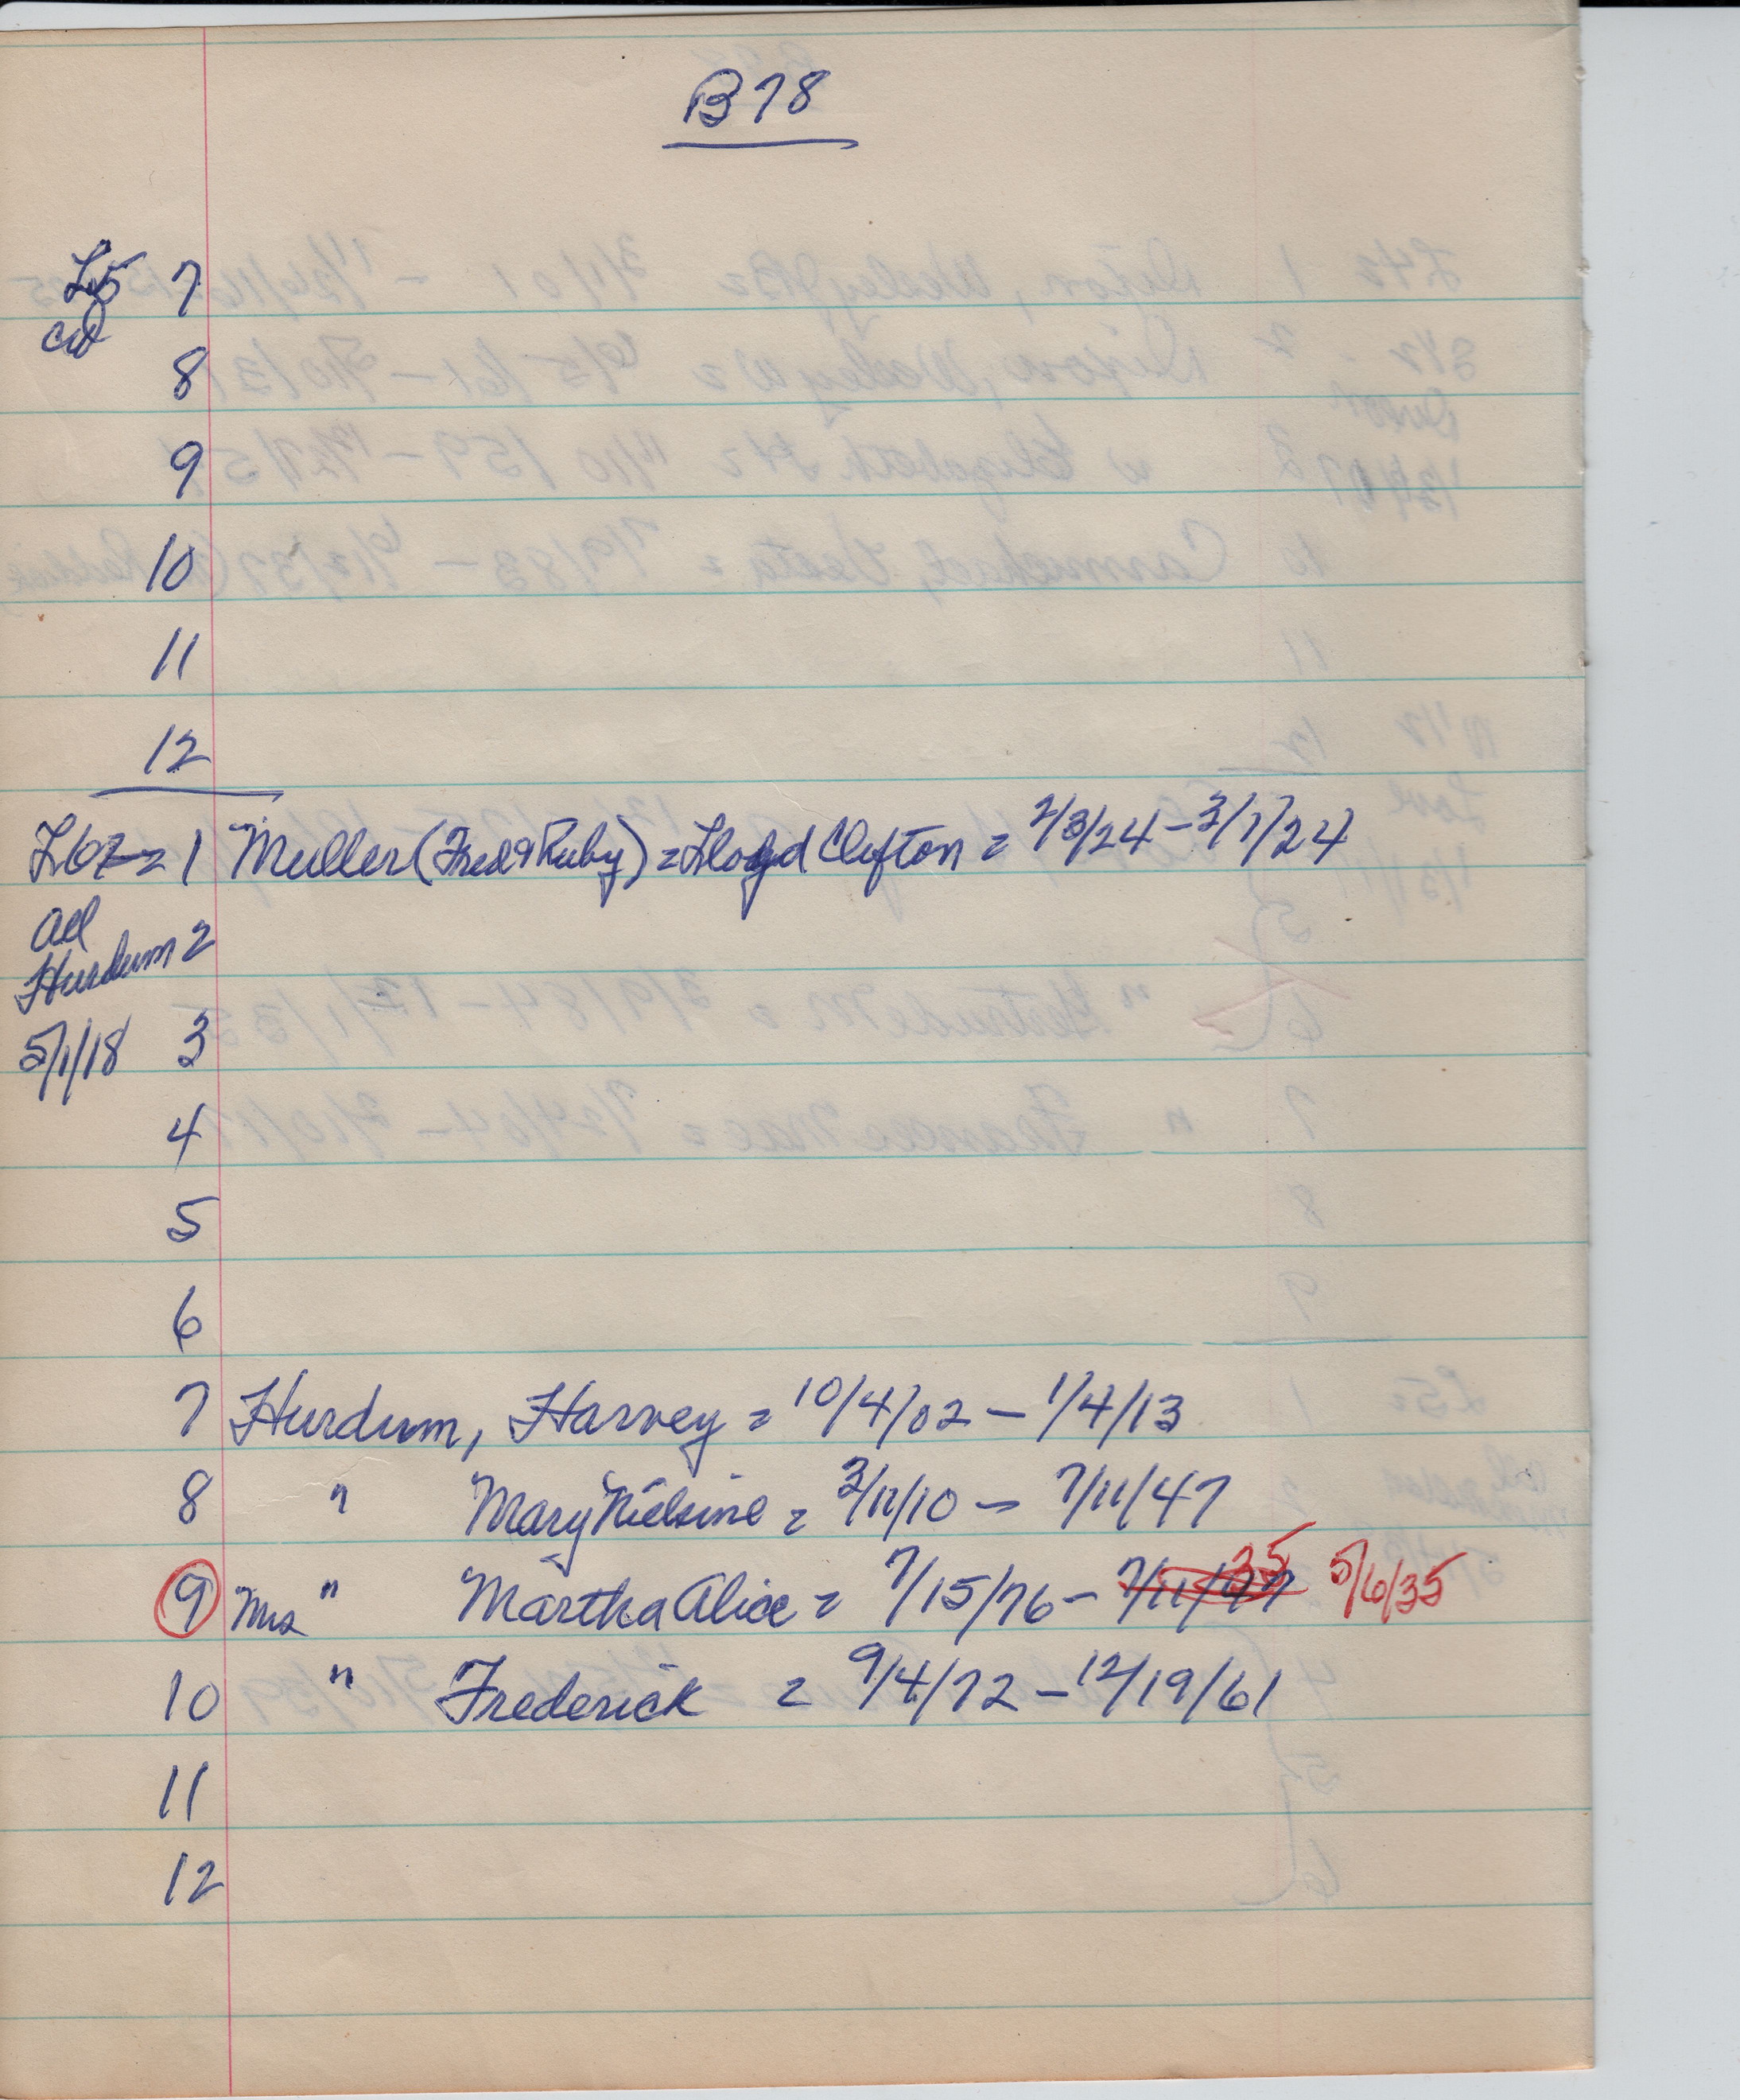 B78
L5 7
8
9
10
11
12
L6 = 1 Muller (Fred & Ruby) = Lloyd Clifton = 2/3/24 - 3/7/24
all
Hurdum 2
5/1/18 3
4
5
6
7 Hurdum, Harvey = 10/4/02 - 1/4/13
8 " Mary Nielsine = 3/11/10 - 7/11/47
9 Mrs " Martha Alice = 7/15/76 - 7/11/47 35 5/6/35
10 " Frederick = 9/4/72 - 12/19/61
11
12